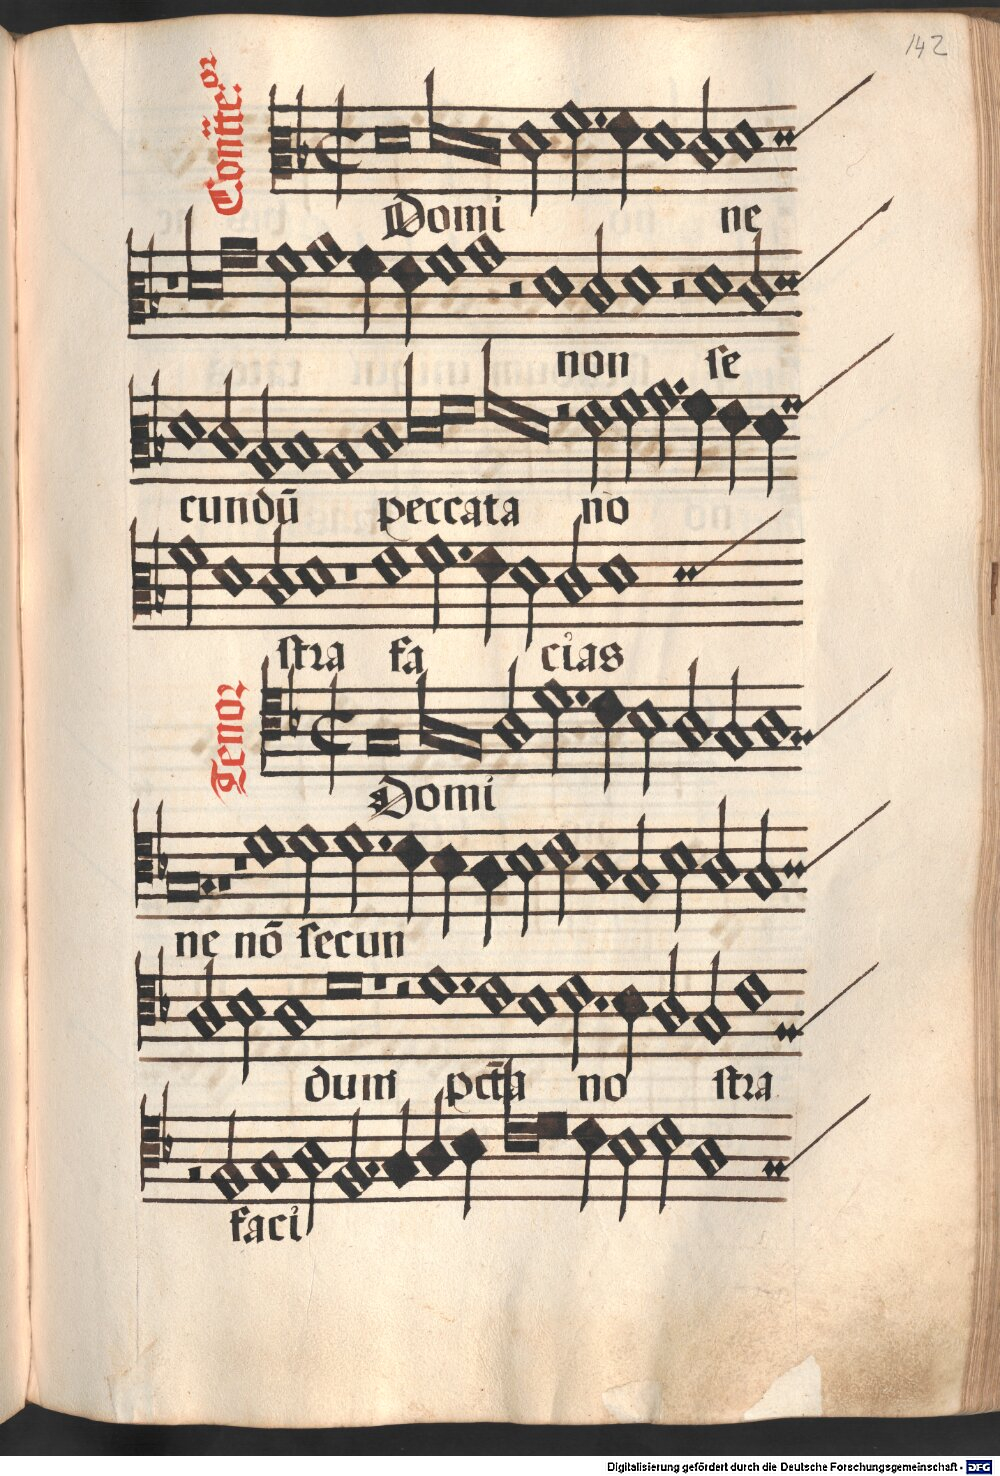 142
Contte:or
Domi ne
non se
cundū peccata no
stra fa cias
Tenor
Domi
ne nō secun
dum pctā no stra
faci
Digitalisierung gefördert durch die Deutsche Forschungsgemeinschaft - DFG